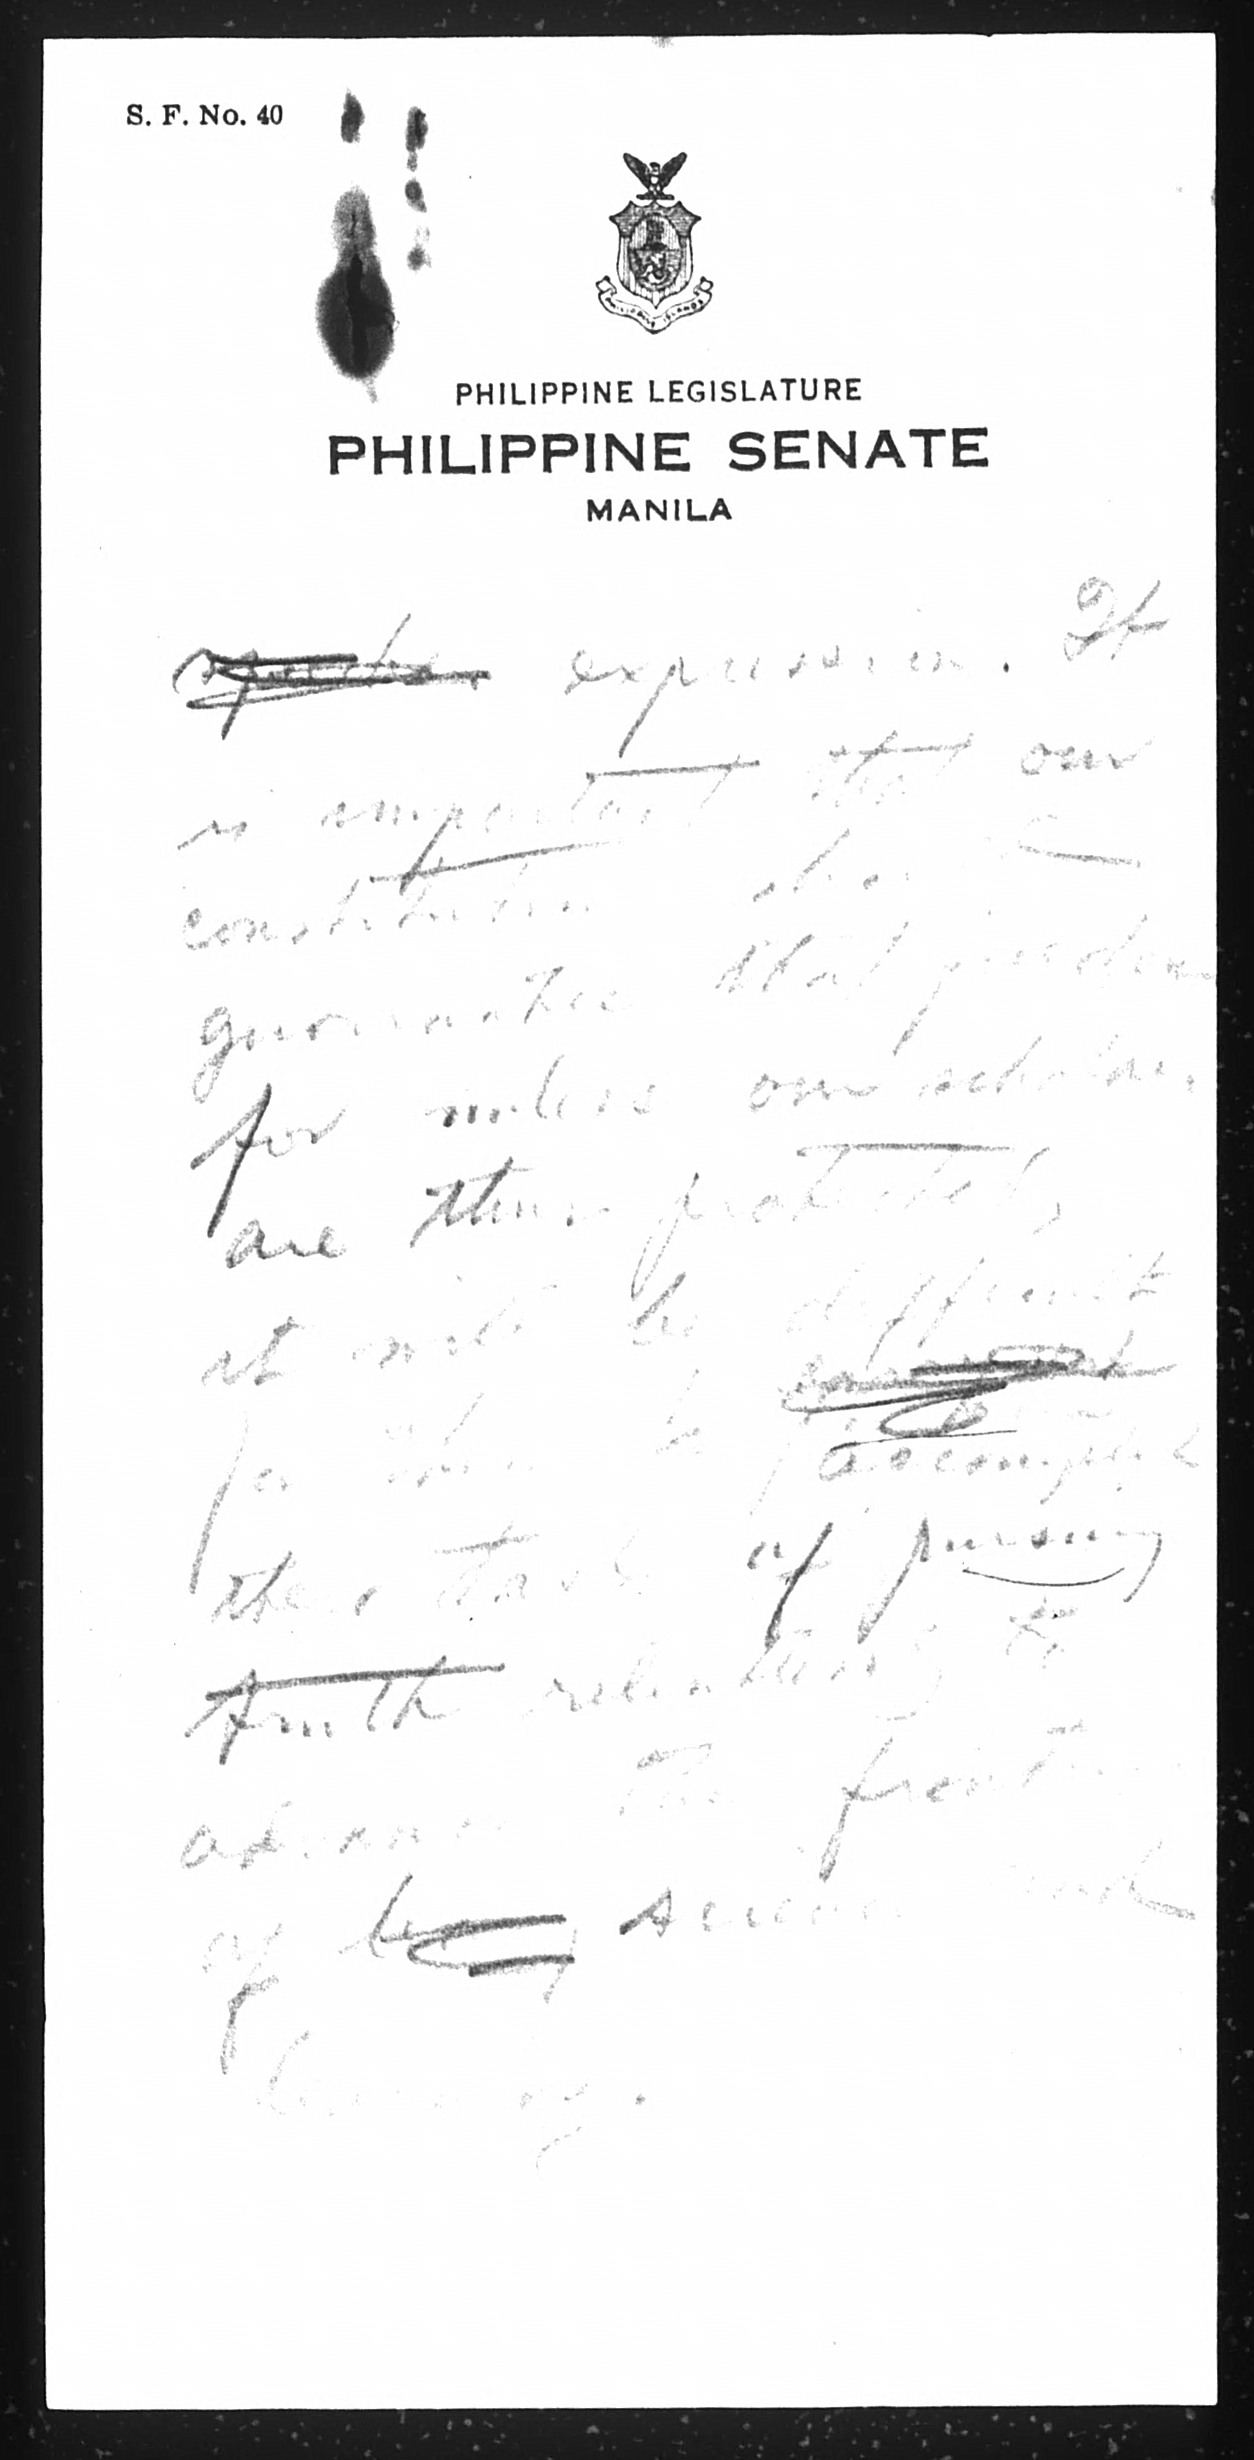 S. F. No. 40
PHILIPPINE ISLANDS
PHILIPPINE LEGISLATURE
PHILIPPINE SENATE
MANILA
expression. It
is important that our
constitution shall
guarantee that freedom
for unless our scholars
are thus protected,
it will be difficult
for them to
accomplish
their task of pursuing
truth relentlessly to
advance the frontiers
of science and
learning.